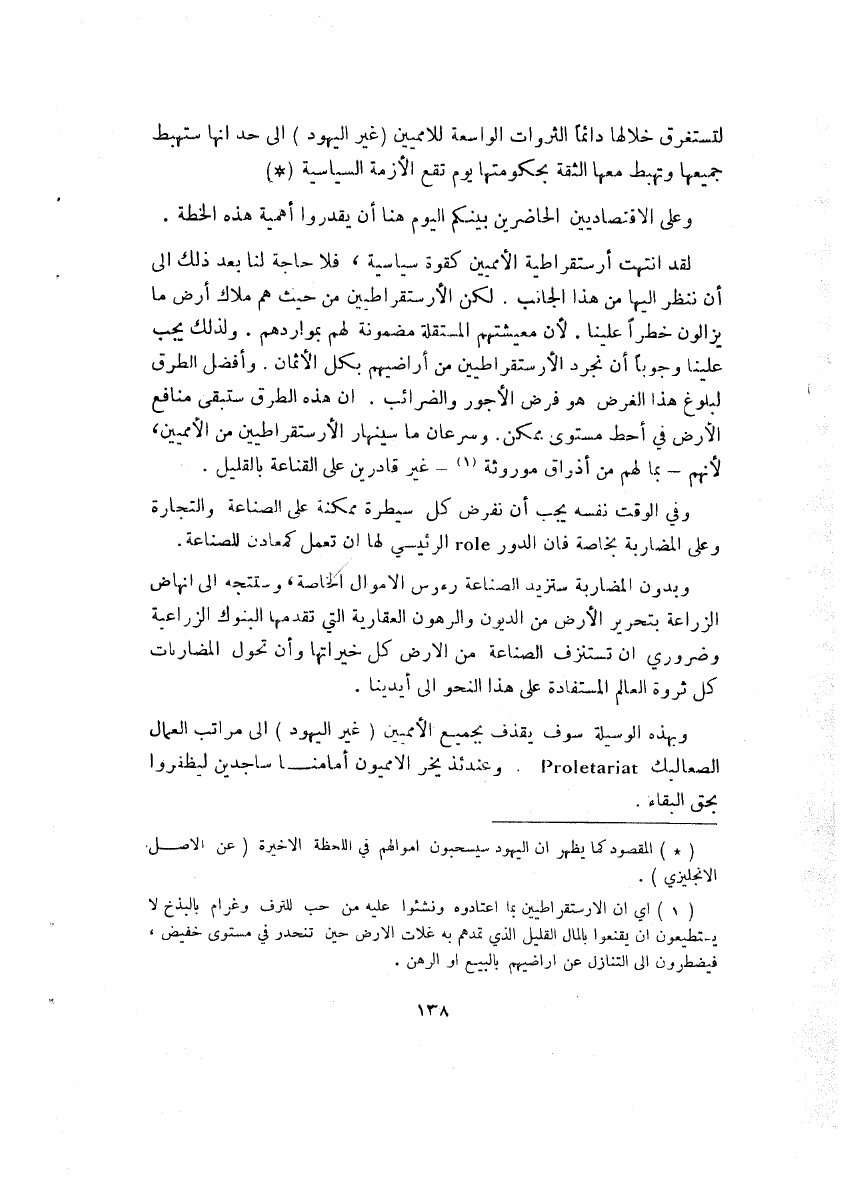 لتستغرق خلالها دائماً الثروات الواسعة للاميين (غير اليهود ) الى حد انها ستهبط
جميعها وتهبط معها الثقة بحكومتها يوم تقع الأزمة السياسية (*)
وعلى الاقتصاديين الحاضرين بينكم اليوم هنا أن يقدروا أهمية هذه الخطة .
لقد انتهت أرستقراطية الأمميين كقوة سياسية ، فلا حاجة لنا بعد ذلك الى
أن ننظر اليها من هذا الجانب . لكن الأرستقراطيين من حيث هم ملاك أرض ما
يزالون خطراً علينا . لأن معيشتهم المستقلة مضمونة لهم بمواردهم . ولذلك يجب
علينا وجوباً أن نجرد الأرستقراطيين من أراضيهم بكل الأثمان . وأفضل الطرق
لبلوغ هذا الغرض هو فرض الأجور والضرائب . ان هذه الطرق ستبقى منافع
الأرض في أحط مستوى ممكن. وسرعان ما سينهار الأرستقراطيين من الأمميين،
لأنهم – بما لهم من أذراق موروثة (١) – غير قادرين على القناعة بالقليل .
وفي الوقت نفسه يجب أن نفرض كل سيطرة ممكنة على الصناعة والتجارة
وعلى المضاربة بخاصة فان الدور role الرئيسي لها ان تعمل كمعادن للصناعة.
وبدون المضاربة ستزيد الصناعة رءوس الاموال الخاصة، وستتجه الى انهاض
الزراعة بتحرير الأرض من الديون والرهون العقارية التي تقدمها البنوك الزراعية
وضروري ان تستنزف الصناعة من الارض كل خيراتها وأن تحول المضاربات
كل ثروة العالم المستفادة على هذا النحو الى أيدينا .
وبهذه الوسيلة سوف يقذف بجميع الأمميين ( غير اليهود ) الى مراتب العمال
الصعاليك Proletariat . وعندئذ يخر الاميون أمامنــــا ساجدين ليظفروا
بحق البقاء .
( * ) المقصود كما يظهر ان اليهود سيسحبون اموالهم في اللحظة الاخيرة ( عن الاصــل
الانجليزي ) .
( ١ ) اي ان الارستقراطيين بما اعتادوه ونشئوا عليه من حب للترف وغرام بالبذخ لا
يستطيعون ان يقنعوا بالمال القليل الذي تمدهم به غلات الارض حين تنحدر في مستوى خفيض ،
فيضطرون الى التنازل عن اراضيهم بالبيع او الرهن .
١٣٨